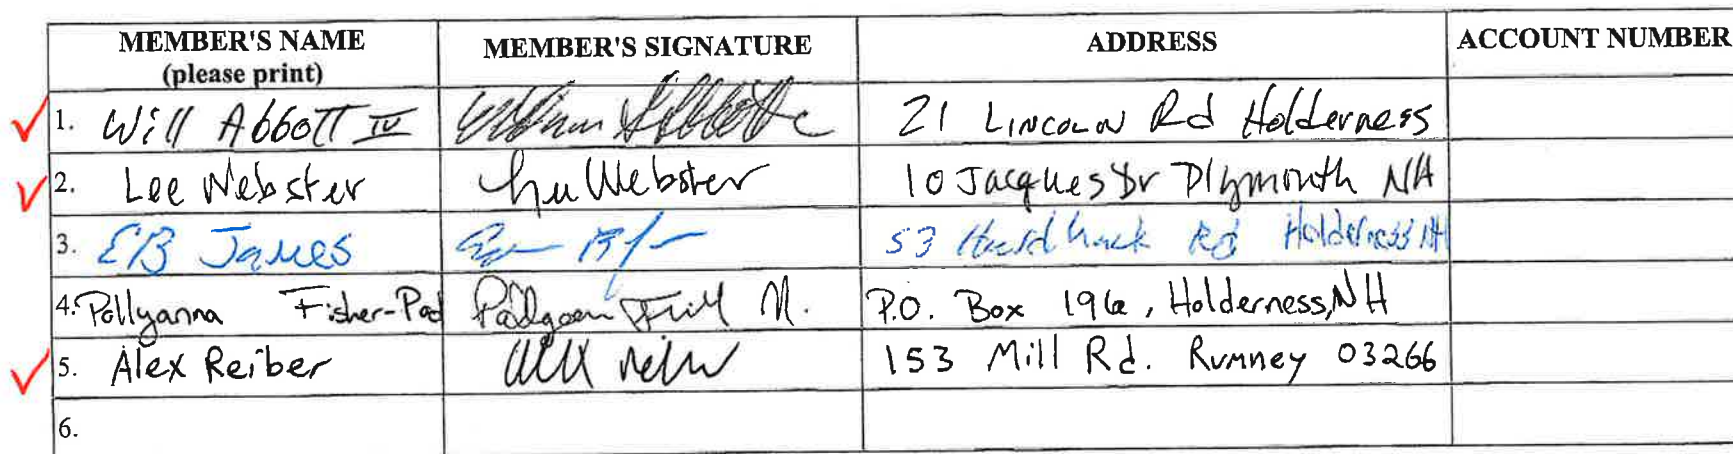 MEMBER'S NAME MEMBER'S SIGNATURE ADDRESS ACCOUNT NUMBER
(please print)
1. Will Abbott IV 21 Lincoln Rd Holderness
2. Lee Webster Lee Webster 10 Jacques Dr Plymouth NH
3. EB James 53 Hardhack Rd Holderness NH
4. Pollyanna Fisher-Pad P.O. Box 196, Holderness, NH
5. Alex Reiber 153 Mill Rd. Rumney 03266
6.